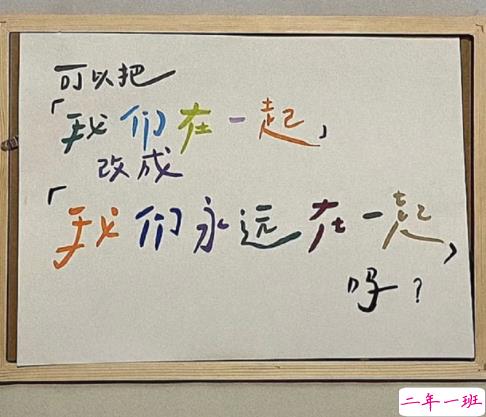 可以把
「我们在一起」
改成
「我们永远在一起」
吗?
二年一班